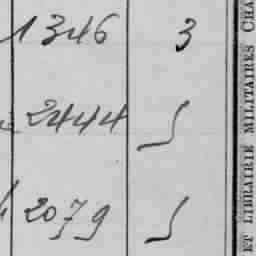 1346 3
2444
2079
ET LIBRAIRIE MILITAIRES CHA